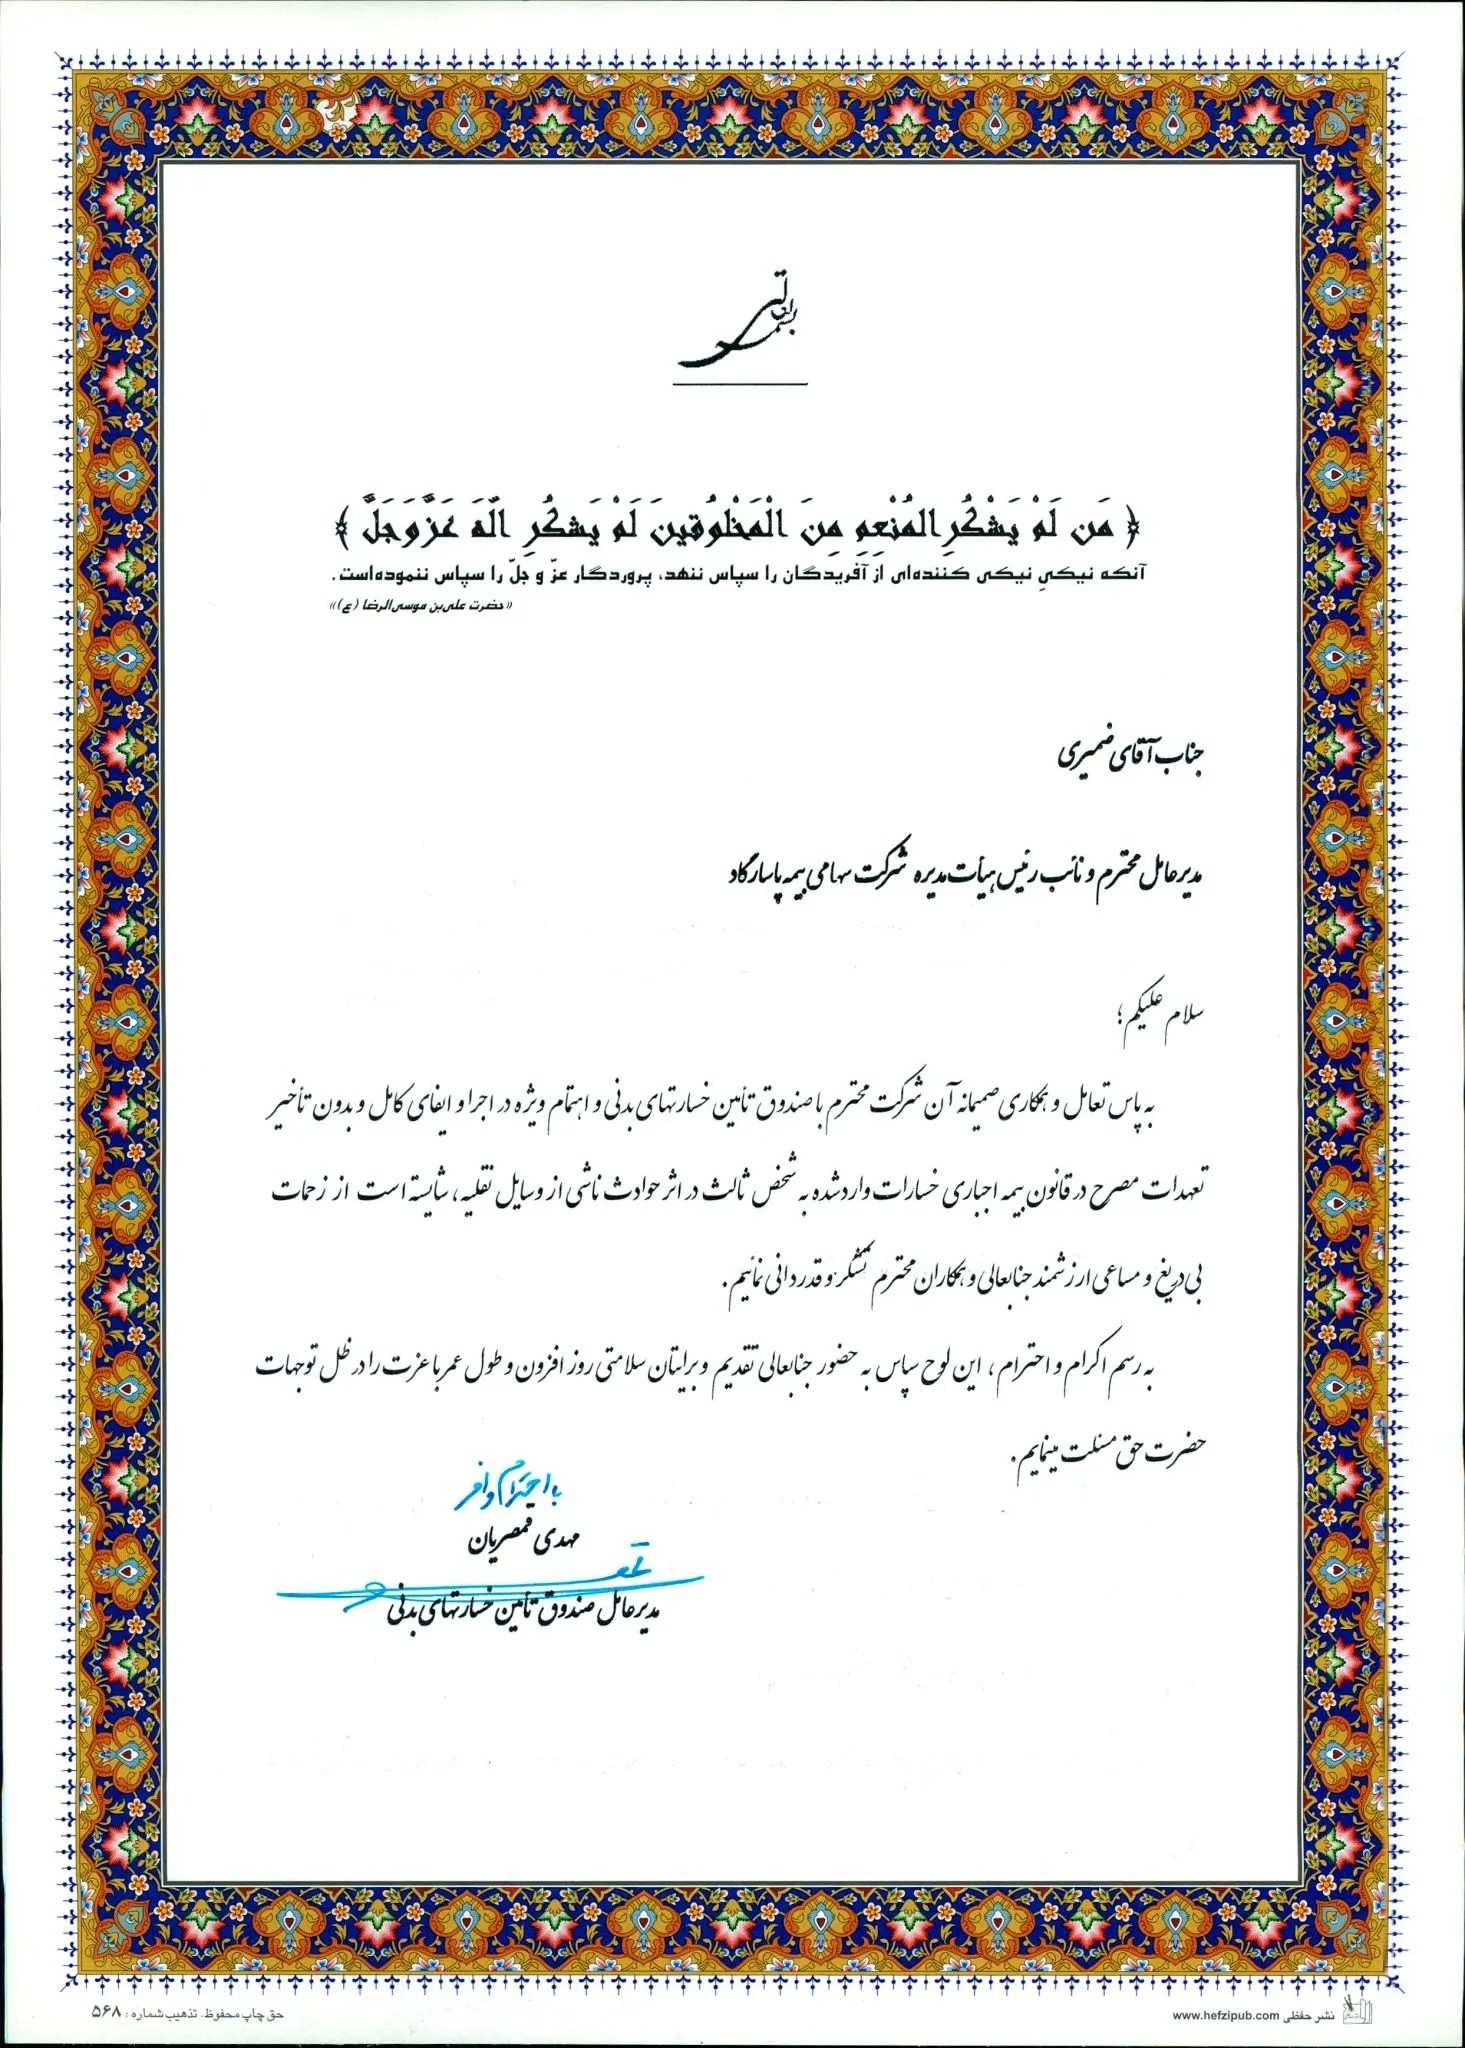 بسمه تعالی
﴿ مَن لَمْ یَشْکُرِ المُنْعِمِ مِنَ الْمَخْلُوقینَ لَمْ یَشکُرِ اللهَ عَزَّوَجَلَّ ﴾
آنکه نیکیِ نیکی کننده‌ای از آفریدگان را سپاس ننهد، پروردگار عزّ و جلّ را سپاس ننموده‌است.
«حضرت علی‌بن موسی‌الرضا (ع)»
جناب آقای ضمیری
مدیرعامل محترم و نائب رئیس هیأت مدیره شرکت سهامی بیمه پاسارگاد
سلام علیکم؛
به پاس تعامل و همکاری صمیمانه آن شرکت محترم با صندوق تأمین خسارتهای بدنی و اهتمام ویژه در اجرا و ایفای کامل و بدون تأخیر
تعهدات مصرح در قانون بیمه اجباری خسارات وارد شده به شخص ثالث در اثر حوادث ناشی از وسایل نقلیه، شایسته است از زحمات
بی دریغ و مساعی ارزشمند جنابعالی و همکاران محترم تشکر و قدردانی نمائیم.
به رسم اکرام و احترام، این لوح سپاس به حضور جنابعالی تقدیم و برایتان سلامتی روز افزون و طول عمر با عزت را در ظل توجهات
حضرت حق مسئلت مینمایم.
با احترام وافر
مهدی قمصریان
مدیرعامل صندوق تأمین خسارتهای بدنی
نشر حفظی www.hefzipub.com
حق چاپ محفوظ. تذهیب شماره : ۵۶۸